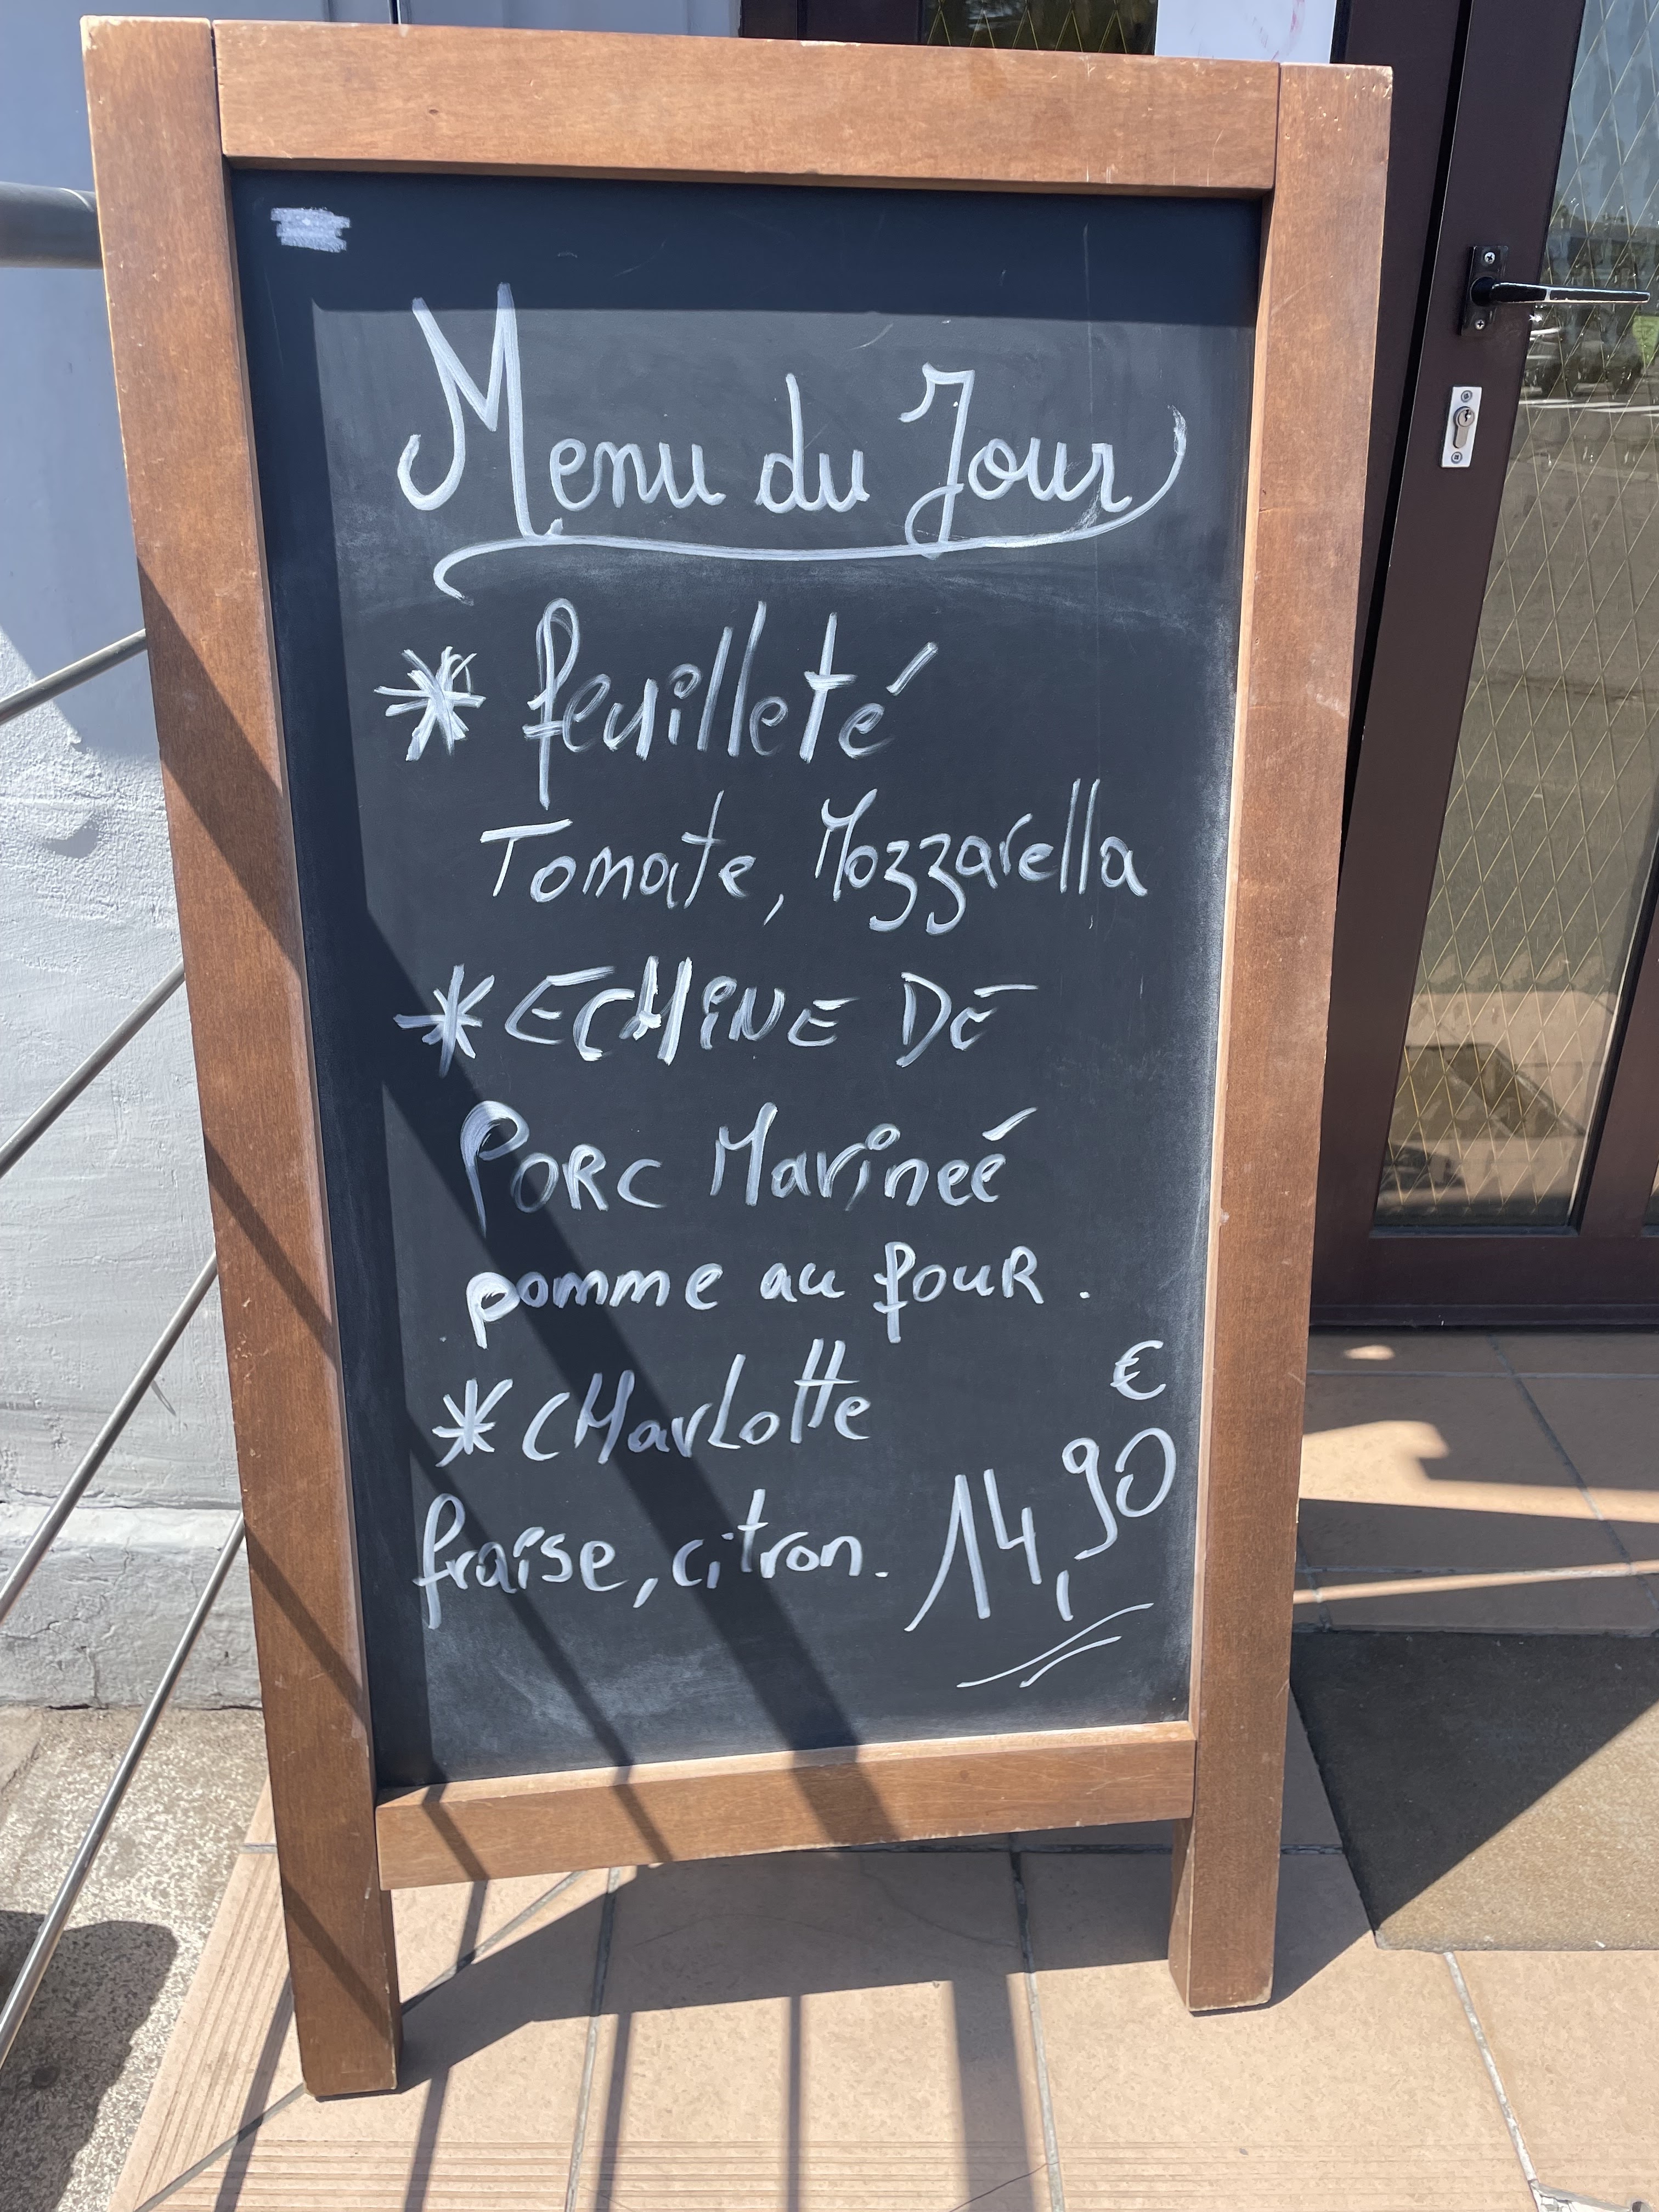 Menu du Jour
* feuilleté
Tomate, Mozzarella
* ECHiNE DE
PORC Marineé
pomme au fouR.
* CHarLotte
€
fraise, citron. 14,90